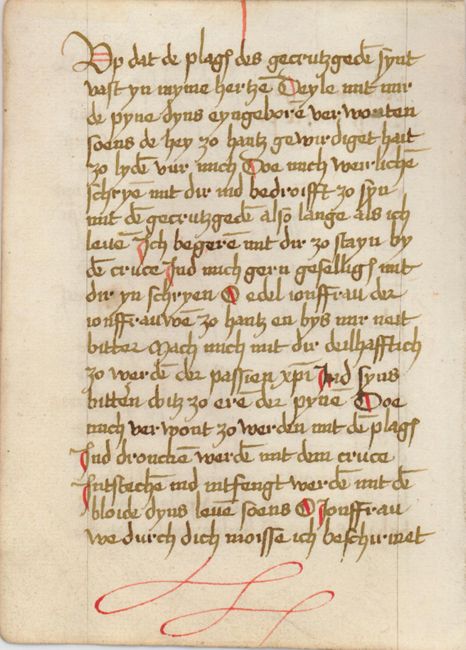 Up dat de plagẽ des gecrutzgedẽ synt
vast yn myme hertzẽ Deyle mit mir
de pyne dyns eyngeborẽ verwonten
soens de hey zo hantz gewirdiget hait
zo lydẽ vur mich Doe mich weirlichẽ
schryẽ mit dir ind bedroifft zo syn
mit dẽ gecrutzgedẽ also lange als ich
leuẽ Ich begerẽ mit dir zo stayn by
dẽ cruce Ind mich gern geselligẽ mit
dir yn schryen O edel ionffrau der
ionffrauwẽ zo hantz en bys mir neit
bitter Mach mich mit dir deilhafftich
zo werdẽ der passien xp̃i Ind syns
bitten doitz zo erẽ der pynẽ Doe
mich verwont zo werden mit dẽ plagẽ
Ind dronckẽ werdẽ mit dem cruce
Intstechẽ ind intfengt werdẽ mit dẽ
bloide dyns leuẽ soens O Jonffrau
we durch dich moisse ich beschirmet